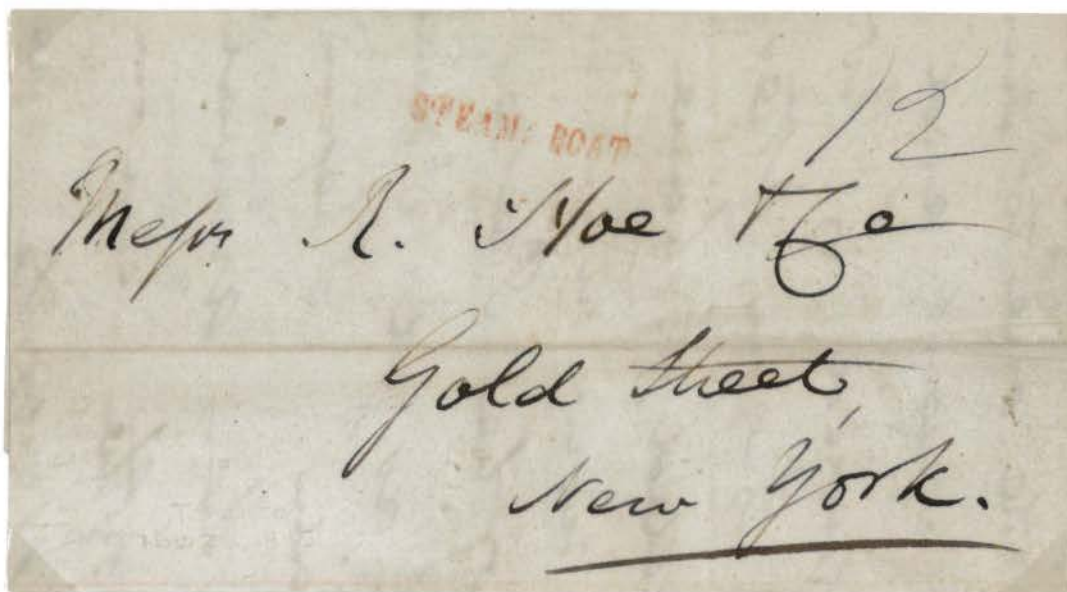 12
STEAM-BOAT
Messrs R. Hoe & Co
Gold Street,
New York.